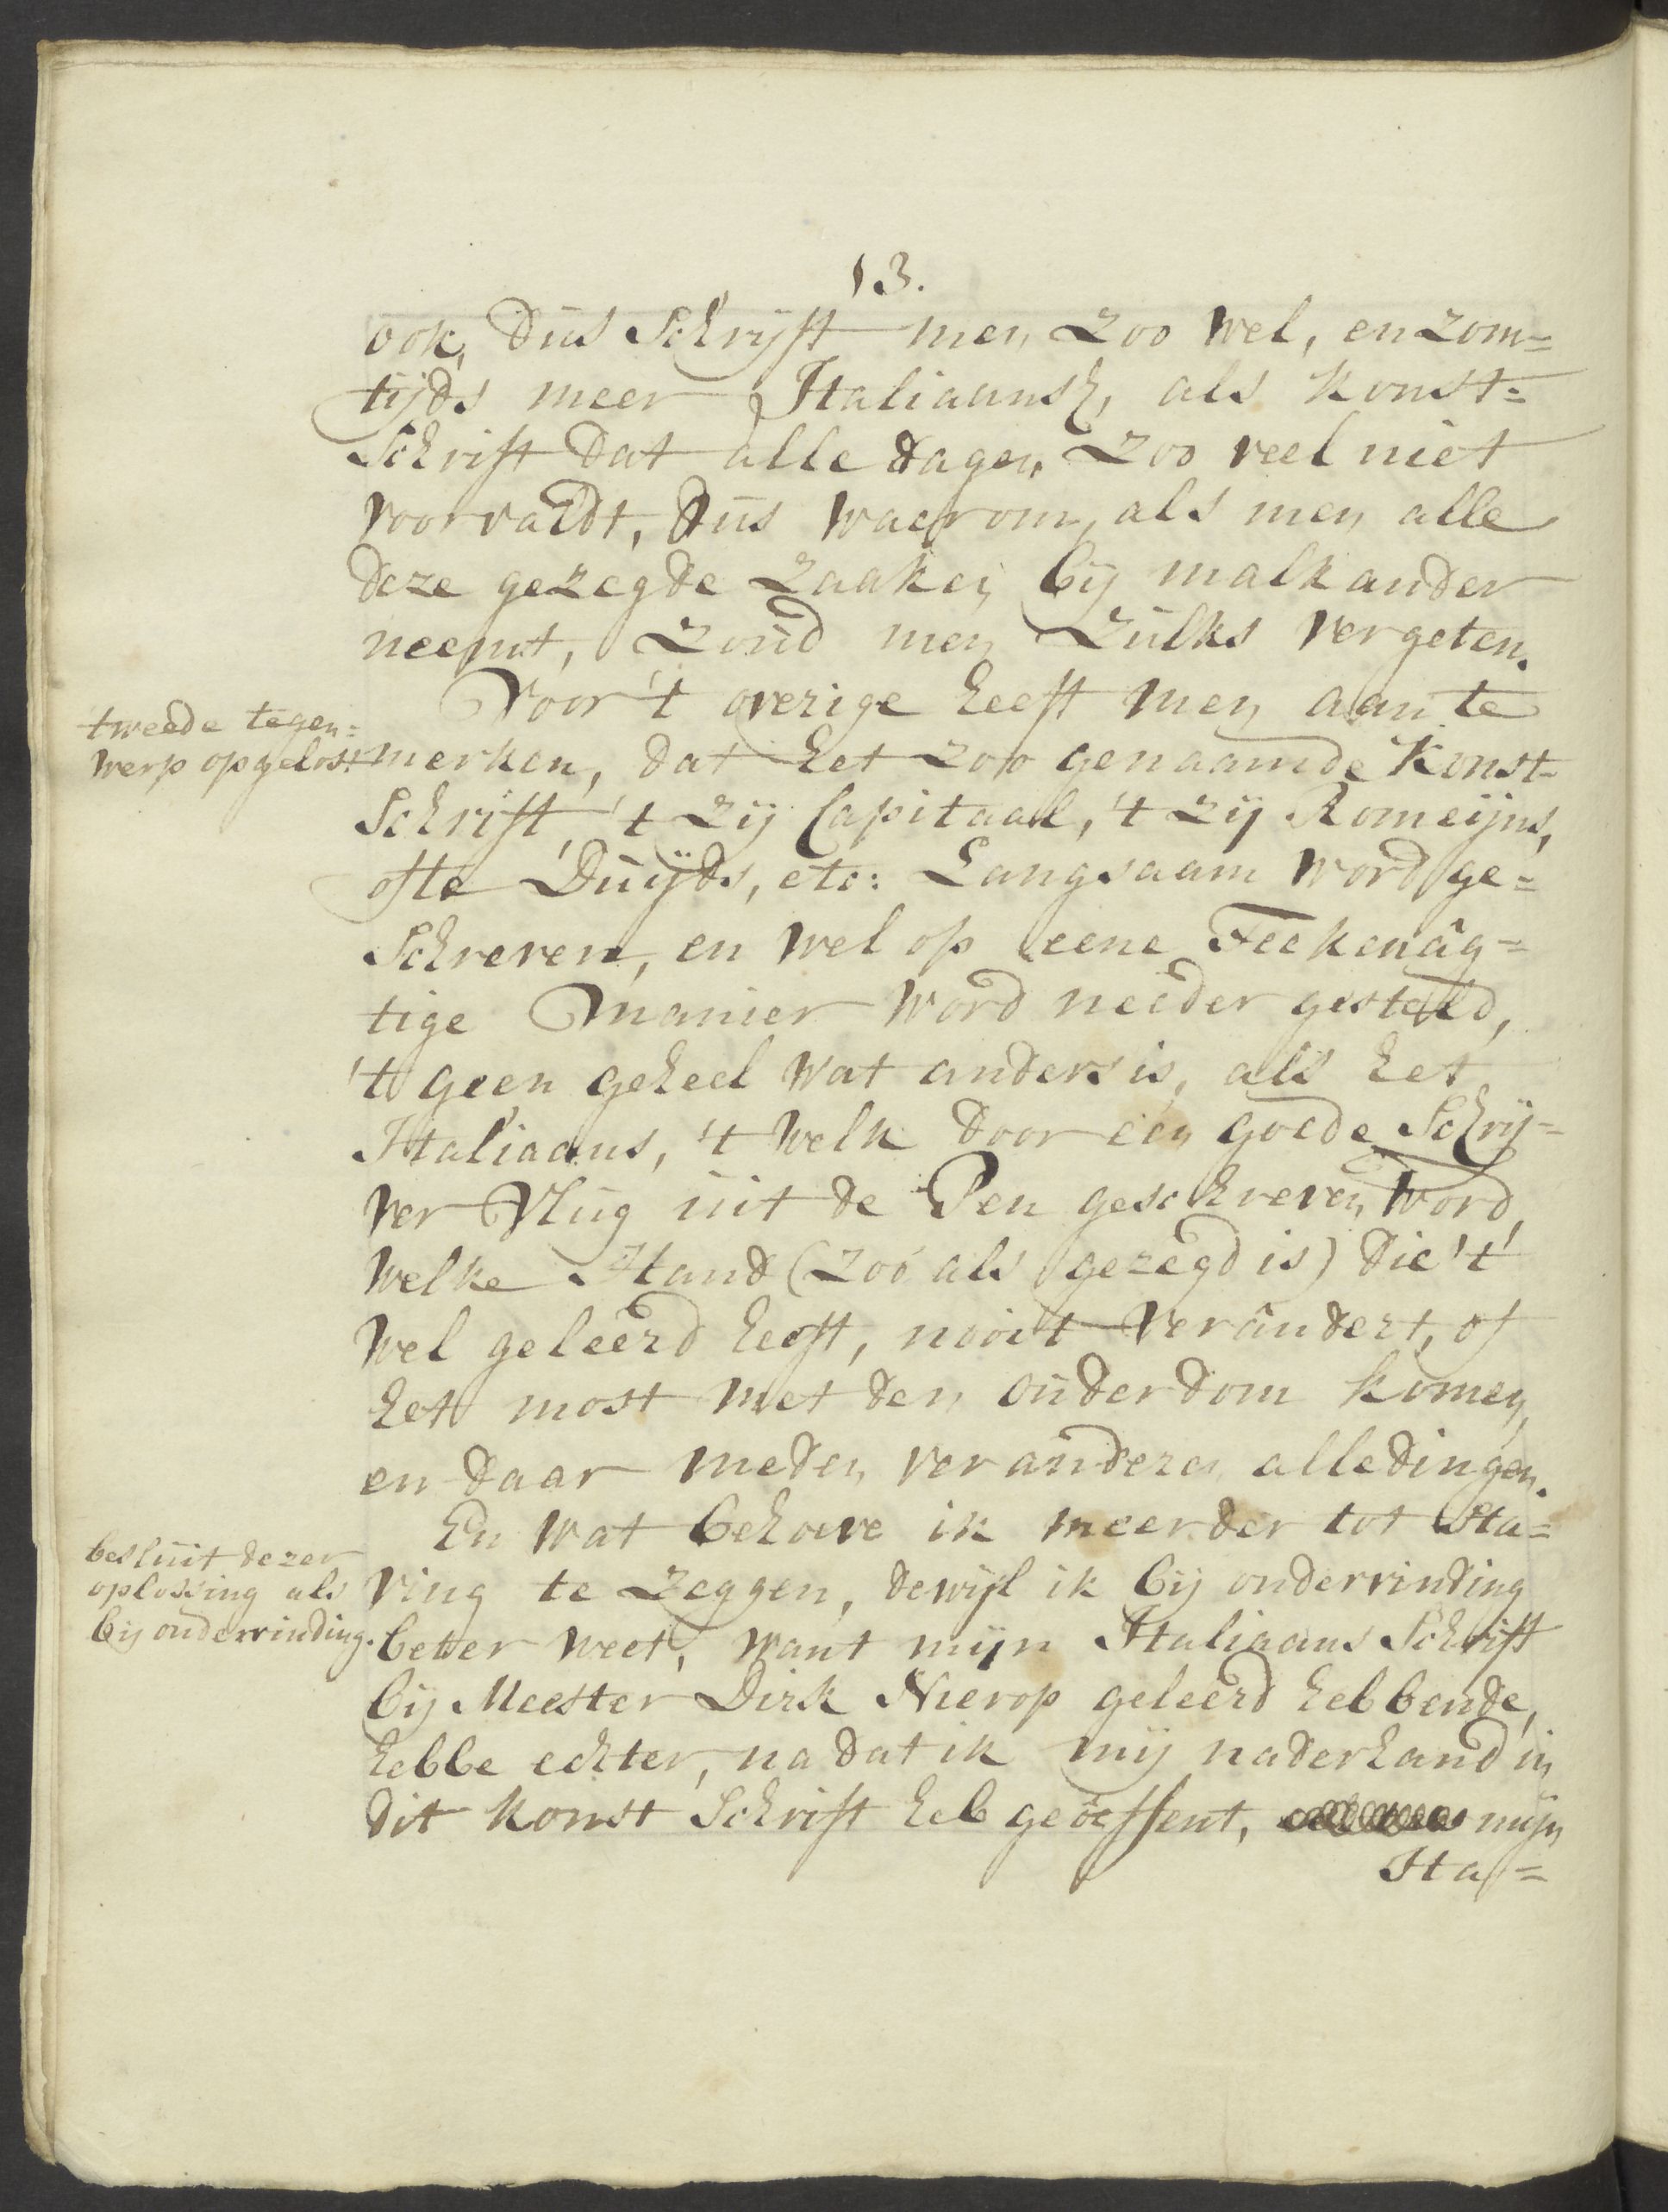 13.
ook, dus Schrijft men zoo wel, en zom=
tijds meer Italiaansch, als konst=
Schrift dat alle dagen zoo veel niet
voorvaldt, dus waerom, als men alle
deze gezegde zaaken bij malkander
neemt, zoud men zulks vergeten.
Voor 't overige heeft men aan te
tweede tegen=
werp opgelost.
merken, dat het zoo genaamde Konst=
Schrift, 't zij Capitaal, 't zij Romeijns,
ofte Duijds, etc: Langsaam word ge=
Schreven, en wel op eene Teekenag=
tige manier word needer gesteld,
't geen geheel wat anders is, als het
Italiaans, 't welk door een goede Schrij=
ver Vlug uit de Pen geschreven word,
welke Hand (zoo als gezegd is) die 't
wel geleerd heeft, nooit verandert, of
het most met den ouderdom komen,
en daar meden veranderen alledingen.
En wat behoeve ik meerder tot sta=
besluit dezer
oplossing als
bij ondervinding.
ving te zeggen, dewijl ik bij ondervinding
beter weet, want mijn Italiaans Schrift
bij Meester Dirk Nierop geleerd hebbende,
hebbe echter, na dat ik mij naderhand in
dit konst Schrift heb geöeffent, mijn
Ita=